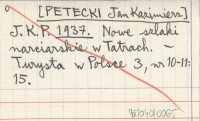 [PETECKI Jan Kazimierz]
J.K.P. 1937. Nowe szlaki
narciarskie w Tatrach. –
Turysta w Polsce 3, nr 10-11:
15.